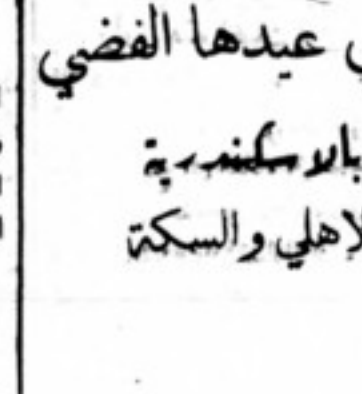 عيدها الفضي
بالاسكندرية
الاهلي والسكة